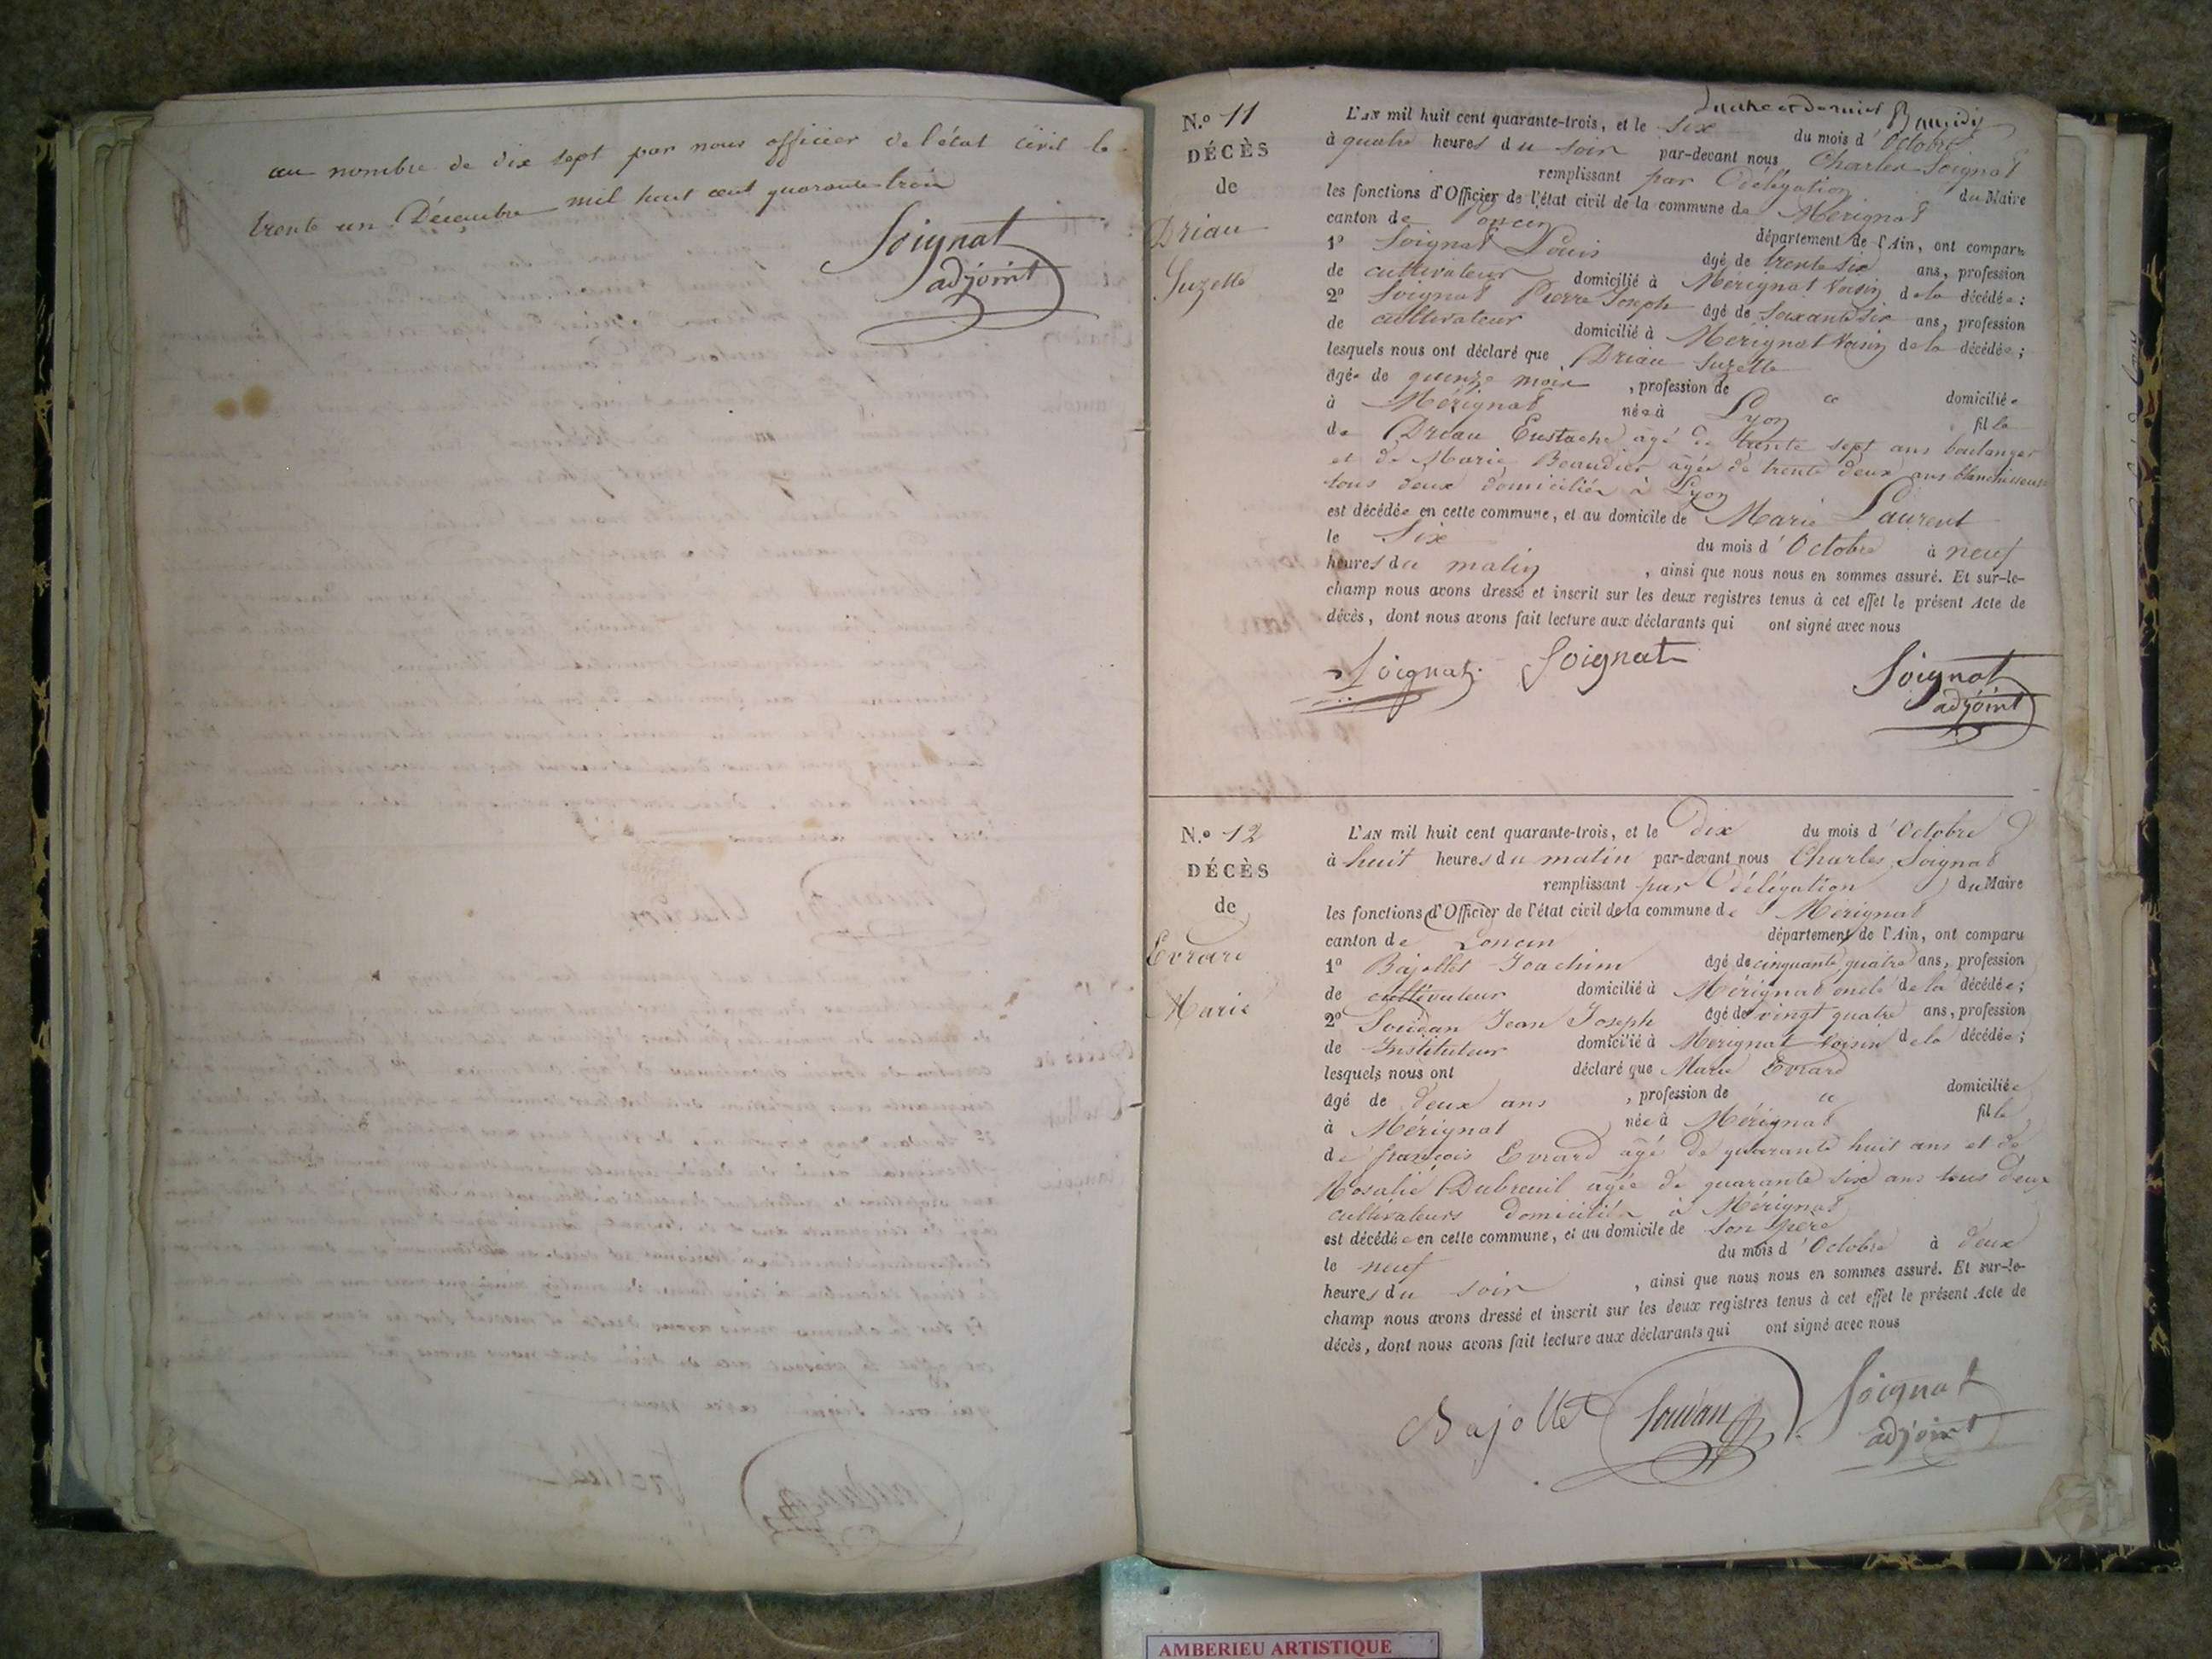 au nombre de dix sept par nous officier de l'état civil le
trente un Décembre mil huit cent quarante trois
Soignat
adjoint
N.º 11
DÉCÈS
de
Driau
Suzette
L'AN mil huit cent quarante-trois, et le six du mois d'Octobre
à quatre heures du soir par-devant nous Charles Soignat
remplissant par délégation du Maire
les fonctions d'Officier de l'état civil de la commune de Mérignat
canton de Poncin département de l'Ain, ont comparu
1º Soignat Louis âgé de trente six ans, profession
de cultivateur domicilié à Mérignat voisin de la décédée;
2º Soignat Pierre Joseph âgé de soixante six ans, profession
de cultivateur domicilié à Mérignat voisin de la décédée;
lesquels nous ont déclaré que Driau Suzette
âgée de quinze mois, profession de domiciliée
à Mérignat née à Lyon fille
de Driau Eustache âgé de trente sept ans boulanger
et de Marie Beaudier âgée de trente deux ans blanchisseuse
tous deux domiciliés à Lyon
est décédée en cette commune, et au domicile de Marie Laurent
le Six du mois d'Octobre à neuf
heures du matin, ainsi que nous nous en sommes assuré. Et sur-le-
champ nous avons dressé et inscrit sur les deux registres tenus à cet effet le présent Acte de
décès, dont nous avons fait lecture aux déclarants qui ont signé avec nous
Soignat Soignat Soignat
adjoint
N.º 12
DÉCÈS
de
Evrard
Marie
L'AN mil huit cent quarante-trois, et le dix du mois d'Octobre
à huit heures du matin par-devant nous Charles Soignat
remplissant par délégation du Maire
les fonctions d'Officier de l'état civil de la commune de Mérignat
canton de Poncin département de l'Ain, ont comparu
1º Bajollet Joachim âgé de cinquante quatre ans, profession
de cultivateur domicilié à Mérignat oncle de la décédée;
2º Soudan Jean Joseph âgé de vingt quatre ans, profession
de Instituteur domicilié à Mérignat voisin de la décédée;
lesquels nous ont déclaré que Marie Evrard
âgé de deux ans, profession de domiciliée
à Mérignat née à Mérignat fille
de françois Evrard âgé de quarante huit ans et de
Rosalie Dubreuil agée de quarante six ans tous deux
cultivateurs domiciliés à Mérignat
est décédée en cette commune, et au domicile de son père
le neuf du mois d'Octobre à deux
heures du soir, ainsi que nous nous en sommes assuré. Et sur-le-
champ nous avons dressé et inscrit sur les deux registres tenus à cet effet le présent Acte de
décès, dont nous avons fait lecture aux déclarants qui ont signé avec nous
Bajollet Soudan Soignat
adjoint
AMBERIEU ARTISTIQUE